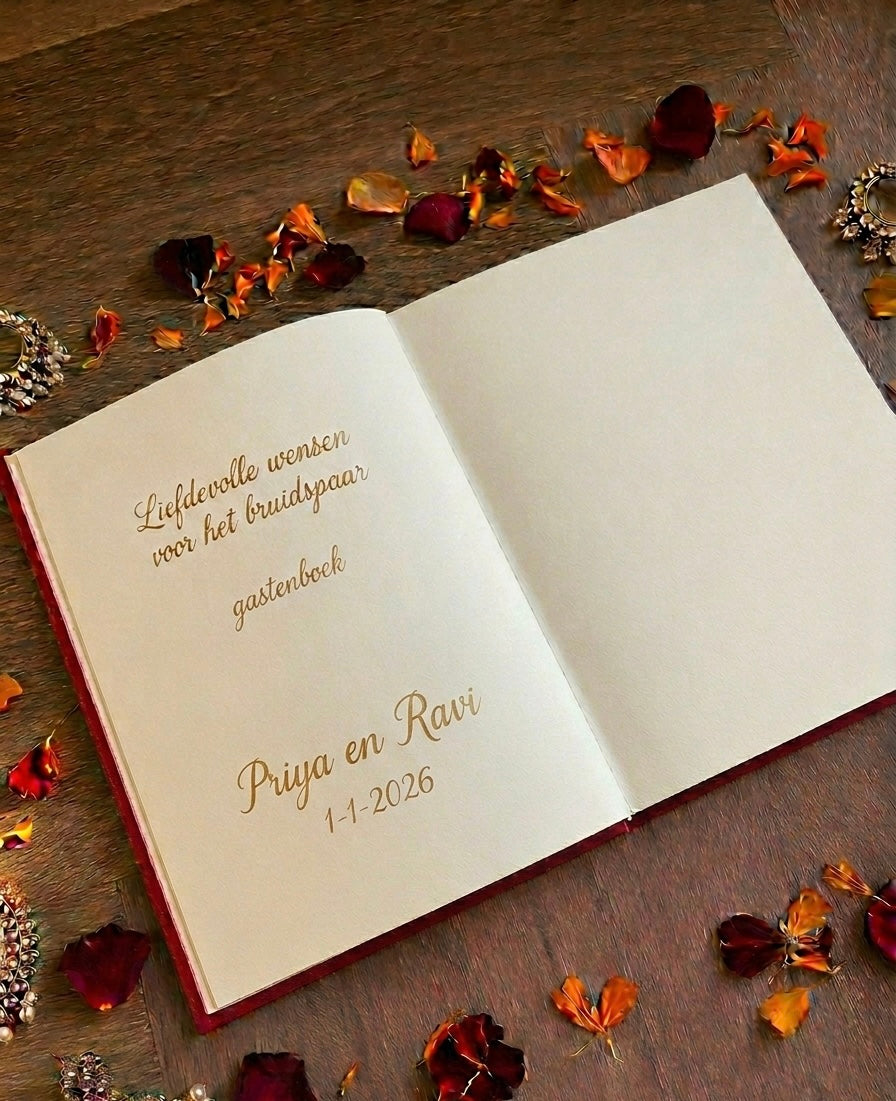 Liefdevolle wensen
voor het bruidspaar
gastenboek
Priya en Ravi
1-1-2026